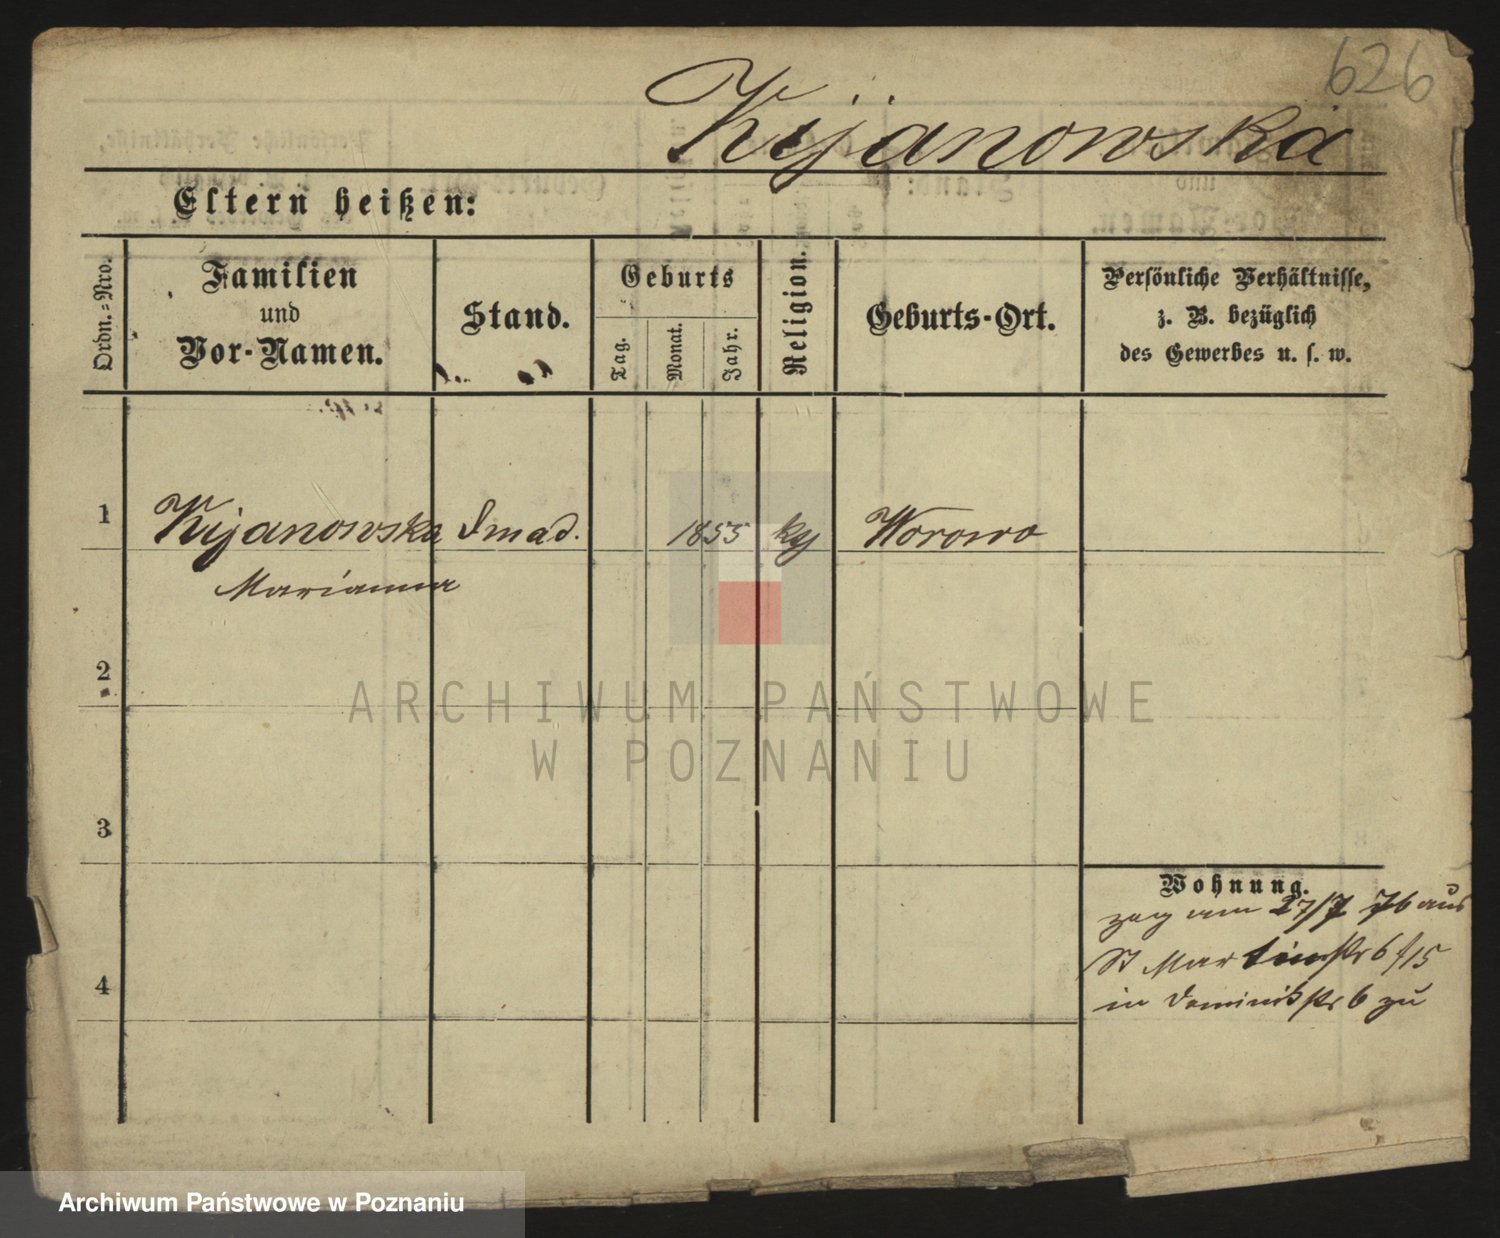 626
Kijanowska
Eltern heißen:
Ordn.-Nro.
Familien
und
Vor-Namen.
Stand.
Geburts
Tag.
Monat.
Jahr.
Religion.
Geburts-Ort.
Persönliche Verhältnisse,
z. B. bezüglich
des Gewerbes u. s. w.
1 Kijanowska 1855 Worowo
Marianna
2
ARCHIWUM PAŃSTWOWE
W POZNANIU
3
Wohnung.
zog am 27/7 76 aus
St Martinstr 6/15
4
in Dominikstr 6 zu
Archiwum Państwowe w Poznaniu